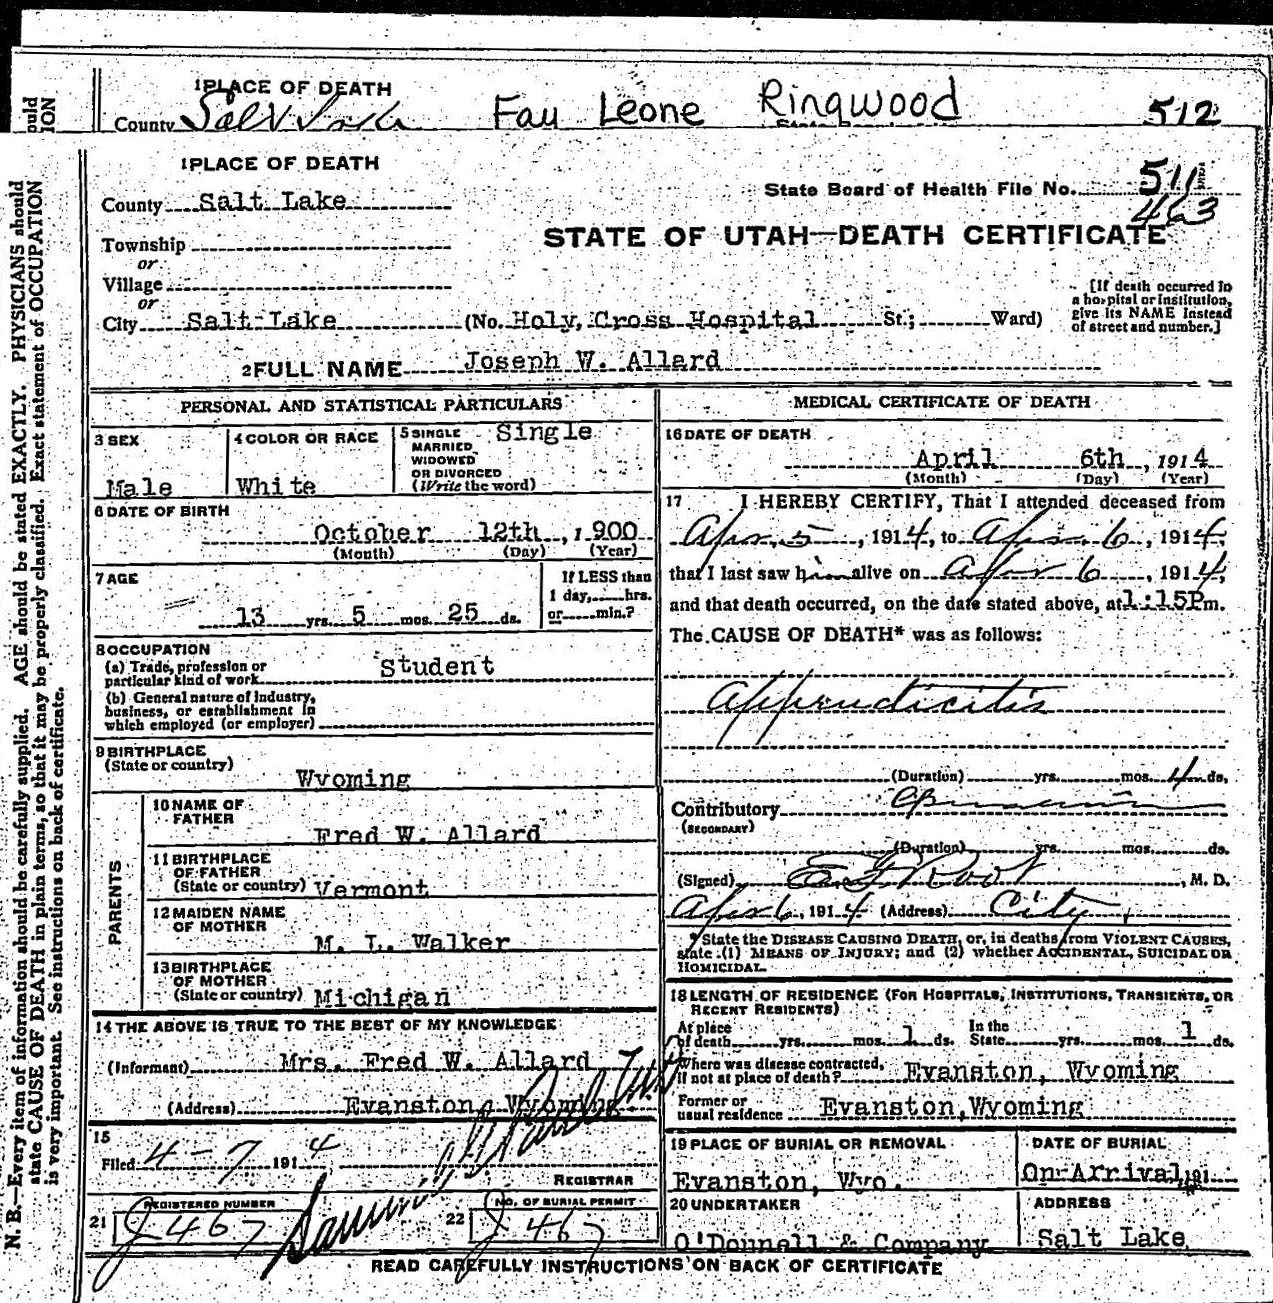 1 PLACE OF DEATH
County Salt Lake Fay Leone Ringwood 512
1 PLACE OF DEATH
State Board of Health File No. 511
463
County Salt Lake
STATE OF UTAH—DEATH CERTIFICATE
Township
or
Village
or
City Salt Lake (No. Holy, Cross Hospital St.; Ward)
[If death occurred in a hospital or institution, give its NAME instead of street and number.]
2 FULL NAME Joseph W. Allard
PERSONAL AND STATISTICAL PARTICULARS
3 SEX Male
4 COLOR OR RACE White
5 SINGLE MARRIED WIDOWED OR DIVORCED (Write the word) Single
6 DATE OF BIRTH
October 12th, 1900
(Month) (Day) (Year)
7 AGE
13 yrs. 5 mos. 25 ds.
If LESS than 1 day, hrs. or min.?
8 OCCUPATION
(a) Trade, profession or particular kind of work Student
(b) General nature of industry, business, or establishment in which employed (or employer)
9 BIRTHPLACE
(State or country)
Wyoming
PARENTS
10 NAME OF FATHER Fred W. Allard
11 BIRTHPLACE OF FATHER (State or country) Vermont
12 MAIDEN NAME OF MOTHER M. L. Walker
13 BIRTHPLACE OF MOTHER (State or country) Michigan
14 THE ABOVE IS TRUE TO THE BEST OF MY KNOWLEDGE
(Informant) Mrs. Fred W. Allard
(Address) Evanston, Wyoming.
15
Filed 4-7 1914
REGISTRAR
21 REGISTERED NUMBER J 467
22 NO. OF BURIAL PERMIT J 467
MEDICAL CERTIFICATE OF DEATH
16 DATE OF DEATH
April 6th, 1914
(Month) (Day) (Year)
17 I HEREBY CERTIFY, That I attended deceased from
Apr. 5, 1914, to Apr. 6, 1914,
that I last saw him alive on Apr 6, 1914,
and that death occurred, on the date stated above, at 1:15P m.
The CAUSE OF DEATH* was as follows:
Appendicitis
(Duration) yrs. mos. 4 ds.
Contributory
(SECONDARY)
(Duration) yrs. mos. ds.
(Signed) E. F. Root, M. D.
Apr 6, 1914 (Address) City
*State the DISEASE CAUSING DEATH, or, in deaths from VIOLENT CAUSES, state (1) MEANS OF INJURY; and (2) whether ACCIDENTAL, SUICIDAL OR HOMICIDAL.
18 LENGTH OF RESIDENCE (FOR HOSPITALS, INSTITUTIONS, TRANSIENTS, OR RECENT RESIDENTS)
At place of death yrs. mos. 1 ds. In the State yrs. mos. 1 ds.
Where was disease contracted, if not at place of death? Evanston, Wyoming
Former or usual residence Evanston, Wyoming
19 PLACE OF BURIAL OR REMOVAL
Evanston, Wyo.
DATE OF BURIAL
On Arrival, 191
20 UNDERTAKER
O'Donnell & Company
ADDRESS
Salt Lake
READ CAREFULLY INSTRUCTIONS ON BACK OF CERTIFICATE
N. B.—Every item of information should be carefully supplied. AGE should be stated EXACTLY. PHYSICIANS should
state CAUSE OF DEATH in plain terms, so that it may be properly classified. Exact statement of OCCUPATION
is very important. See instructions on back of certificate.